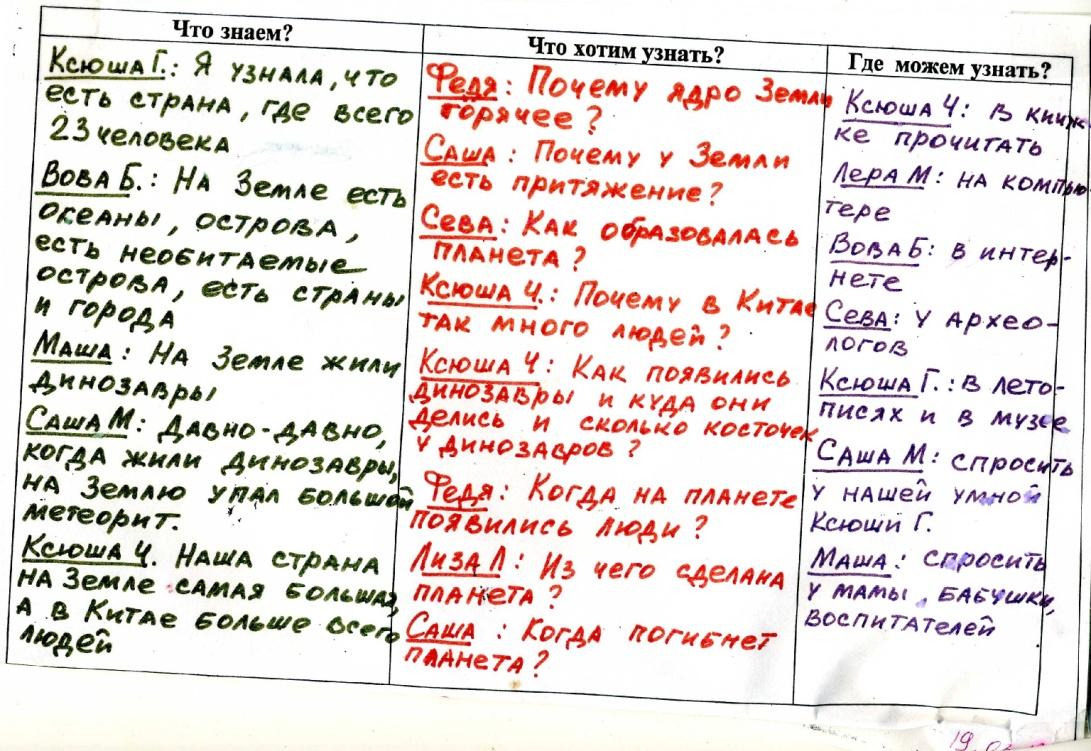 Что знаем?
Ксюша Г.: Я узнала, что
есть страна, где всего
23 человека
Вова Б.: На Земле есть
океаны, острова,
есть необитаемые
острова, есть страны
и города
Маша: На Земле жили
динозавры
Саша М: Давно-давно,
когда жили динозавры,
на Землю упал большой
метеорит.
Ксюша Ч. Наша страна
на Земле самая большая,
а в Китае больше всего
людей
Что хотим узнать?
Федя: Почему ядро Земли
горячее?
Саша: Почему у Земли
есть притяжение?
Сева: Как образовалась
планета?
Ксюша Ч.: Почему в Китае
так много людей?
Ксюша Ч: Как появились
динозавры и куда они
делись и сколько косточек
у динозавров?
Федя: Когда на планете
появились люди?
Лиза Л: Из чего сделана
планета?
Саша: Когда погибнет
планета?
Где можем узнать?
Ксюша Ч: в книж-
ке прочитать
Лера М: на компью-
тере
Вова Б: в интер-
нете
Сева: у архео-
логов
Ксюша Г.: в лето-
писях и в музее
Саша М: спросить
у нашей умной
Ксюши Г.
Маша: спросить
у мамы, бабушки,
воспитателей
19.